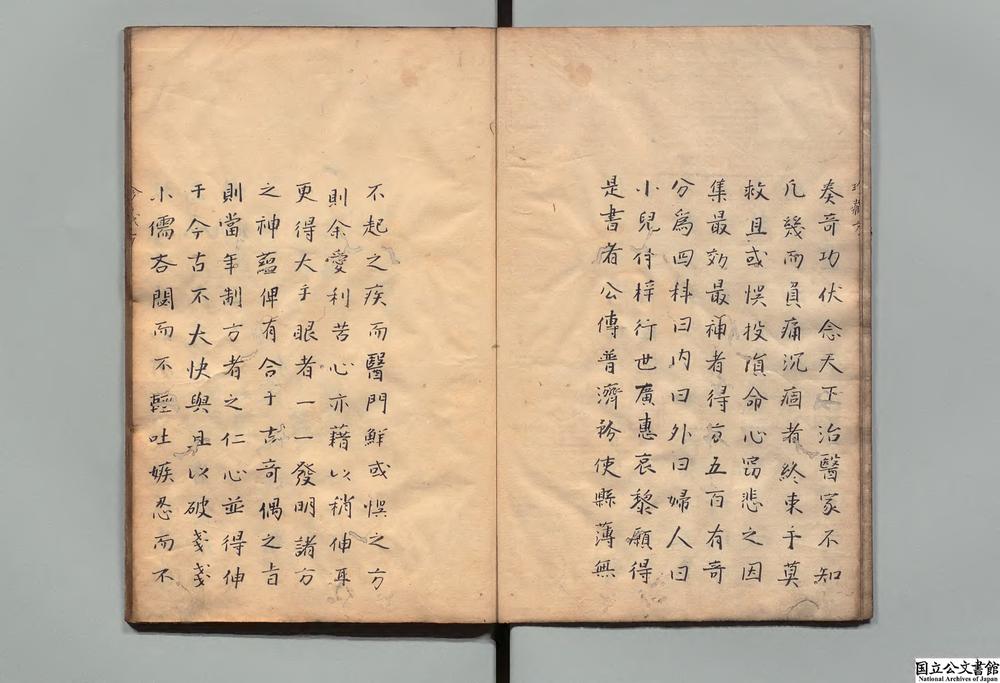 奏奇功伏念天下治醫家不知
凡幾而負痛沉痼者終束手莫
救且或悞投隕命心窃悲之因
集最効最神者得方五百有奇
分爲四科曰内曰外曰婦人曰
小兒付梓行世廣惠哀黎願得
是書者公傳普濟衿使縣薄無
不起之疾而醫門鮮或悞之方
則余愛利苦心亦藉以稍伸耳
更得大手眼者一一發明諸方
之神蘊俾有合于古奇偶之旨
則當年制方者之仁心並得伸
于今古不大快與且以破戔戔
小儒吝閟而不輕吐嫉忍而不
国立公文書館
National Archives of Japan